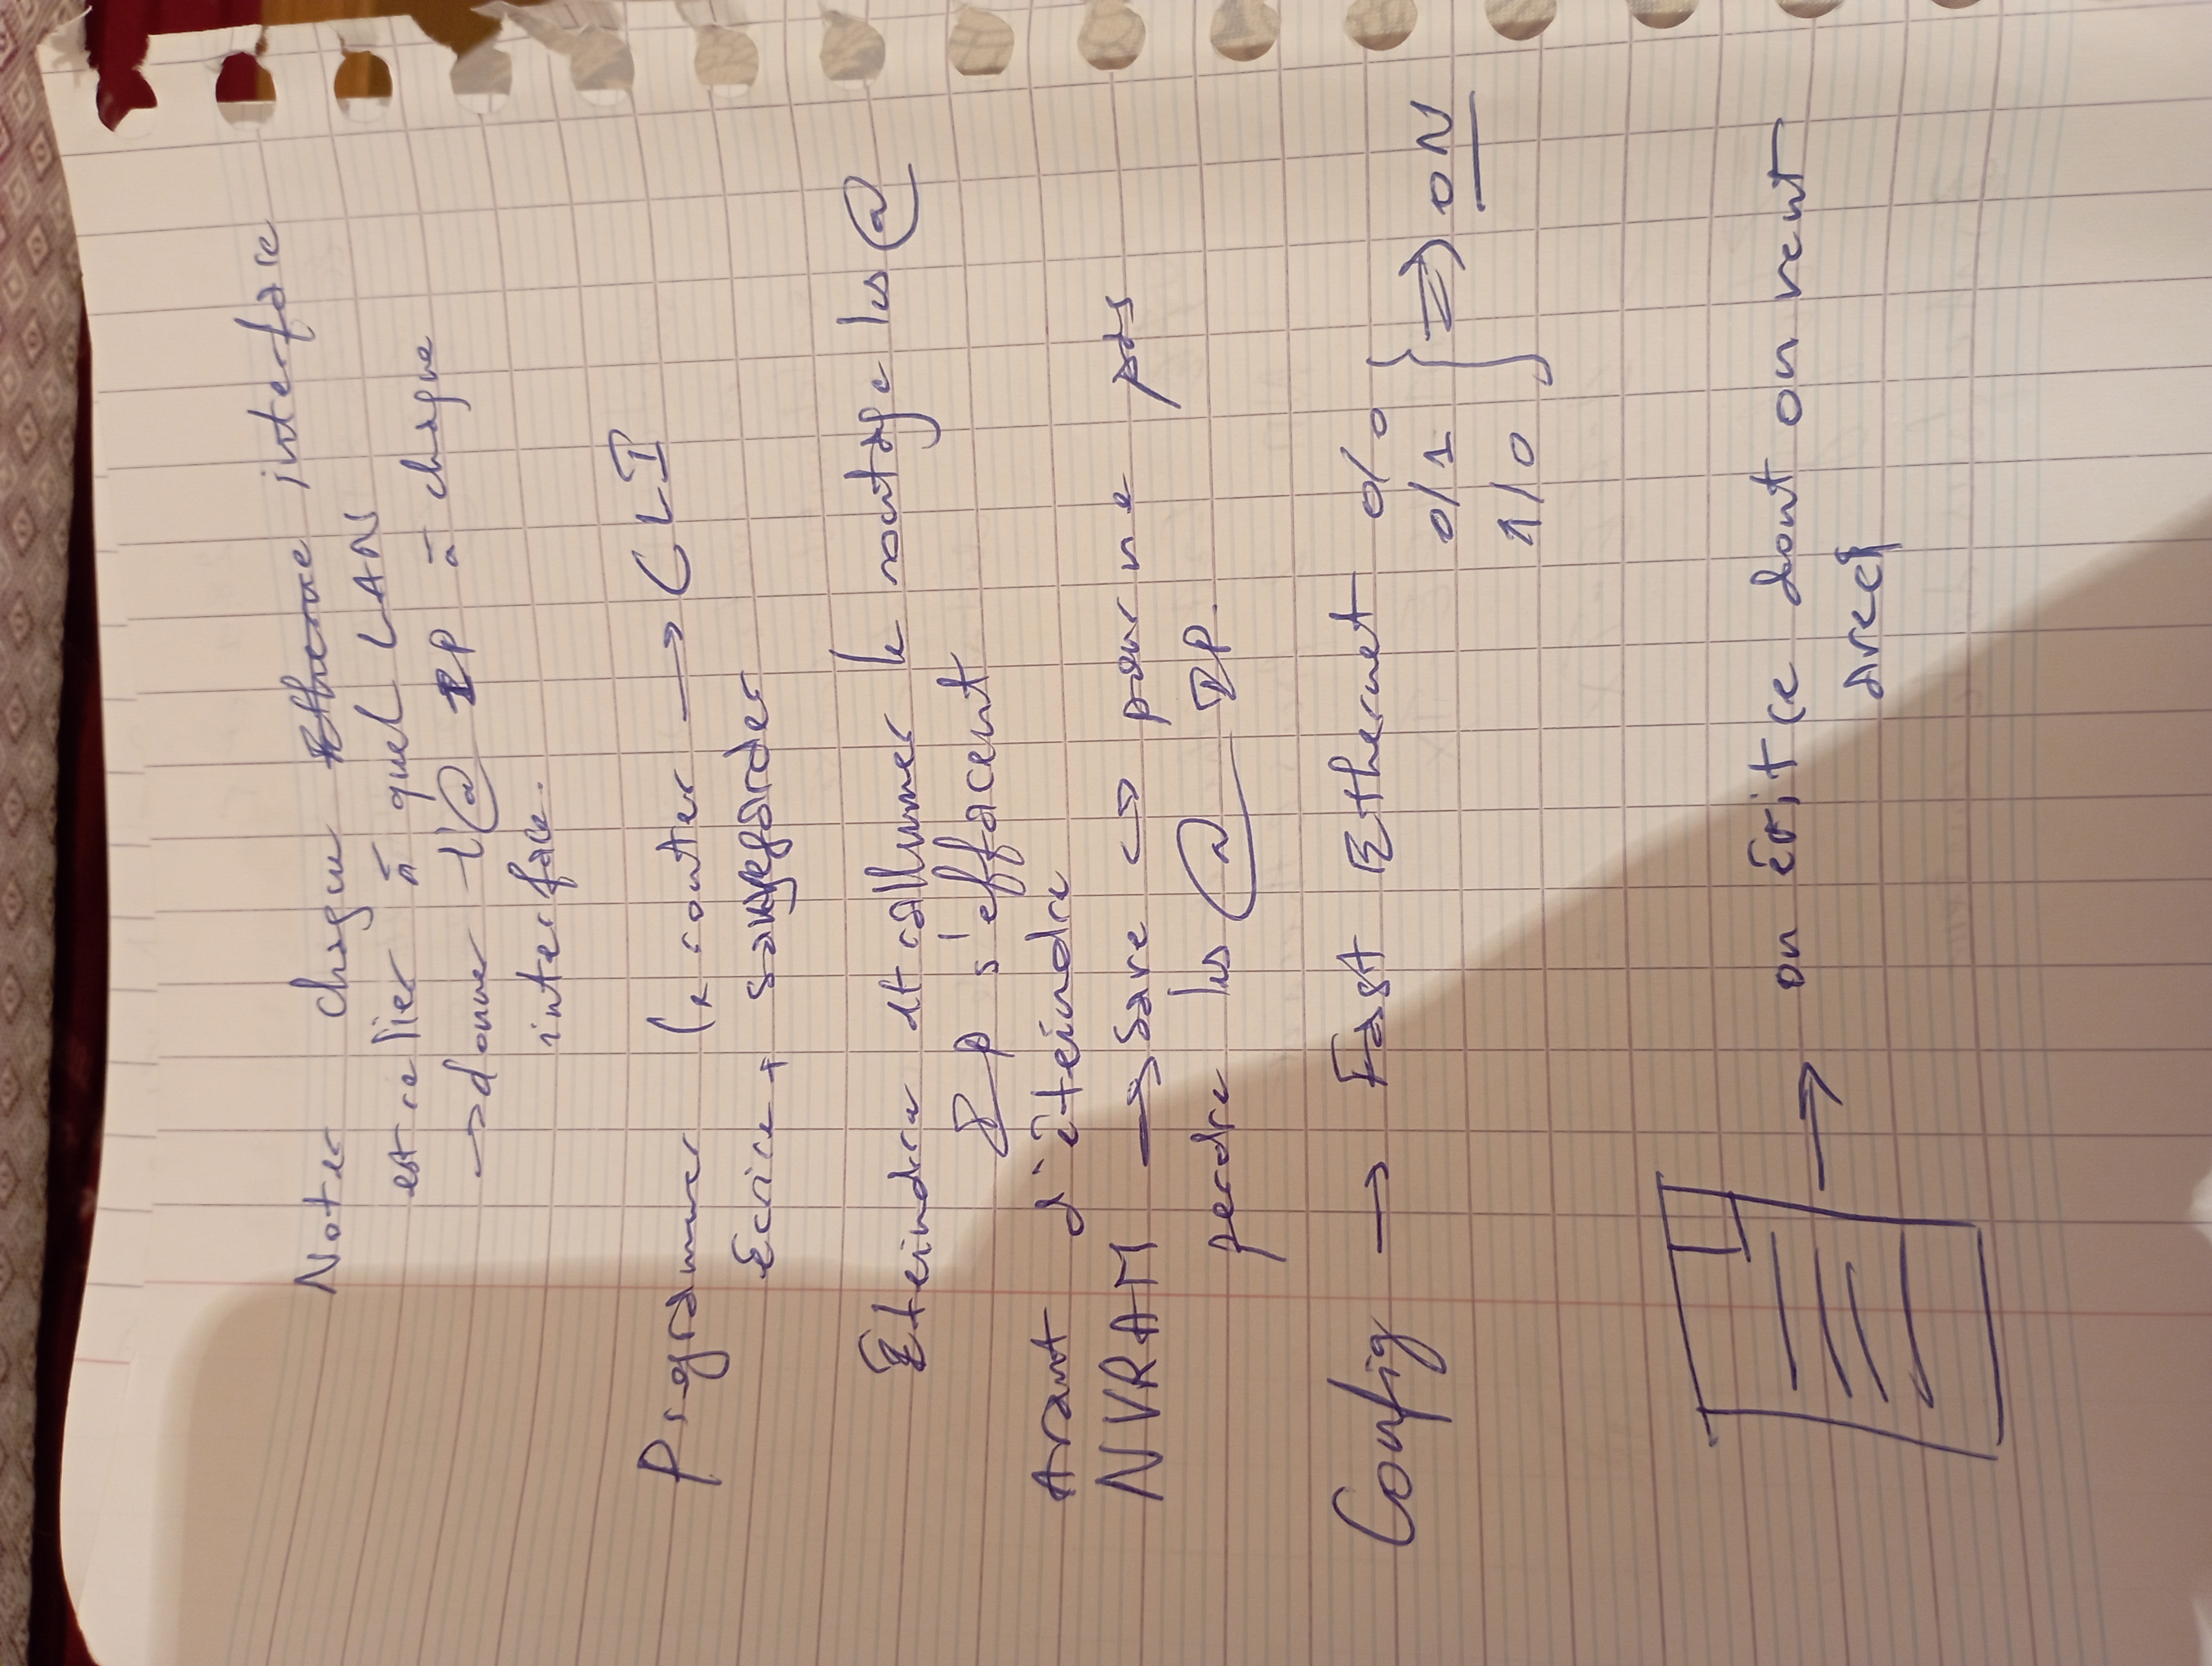 Noter chaque Etherne interface
est relier à quel LAN
→ donner l'@ IP à chaque
interface.
Programmer (e router → CLI
Ecrire + sauvegarder
Eteindre et rallumer le routage les @
IP s'effacent
Avant d'éteindre
NVRAM → Save ↔ pour ne pas
perdre les @ IP.
Config → Fast Ethernet 0/0
0/1
1/0
} ⇒ ON
→ on écrit ce dont on veut
avec